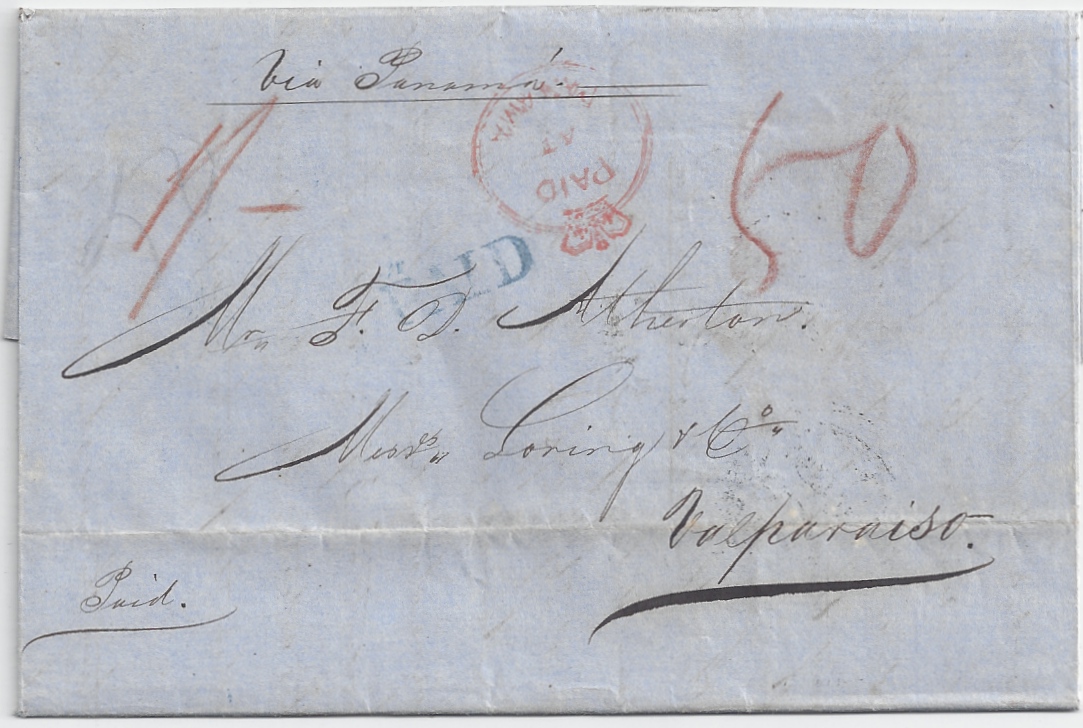 Via Panamá.
PAID
AT
PANAMA
1/-
50
PAID
Mr F. D. Atherton.
Messrs Loring & Co
Valparaiso.
Paid.